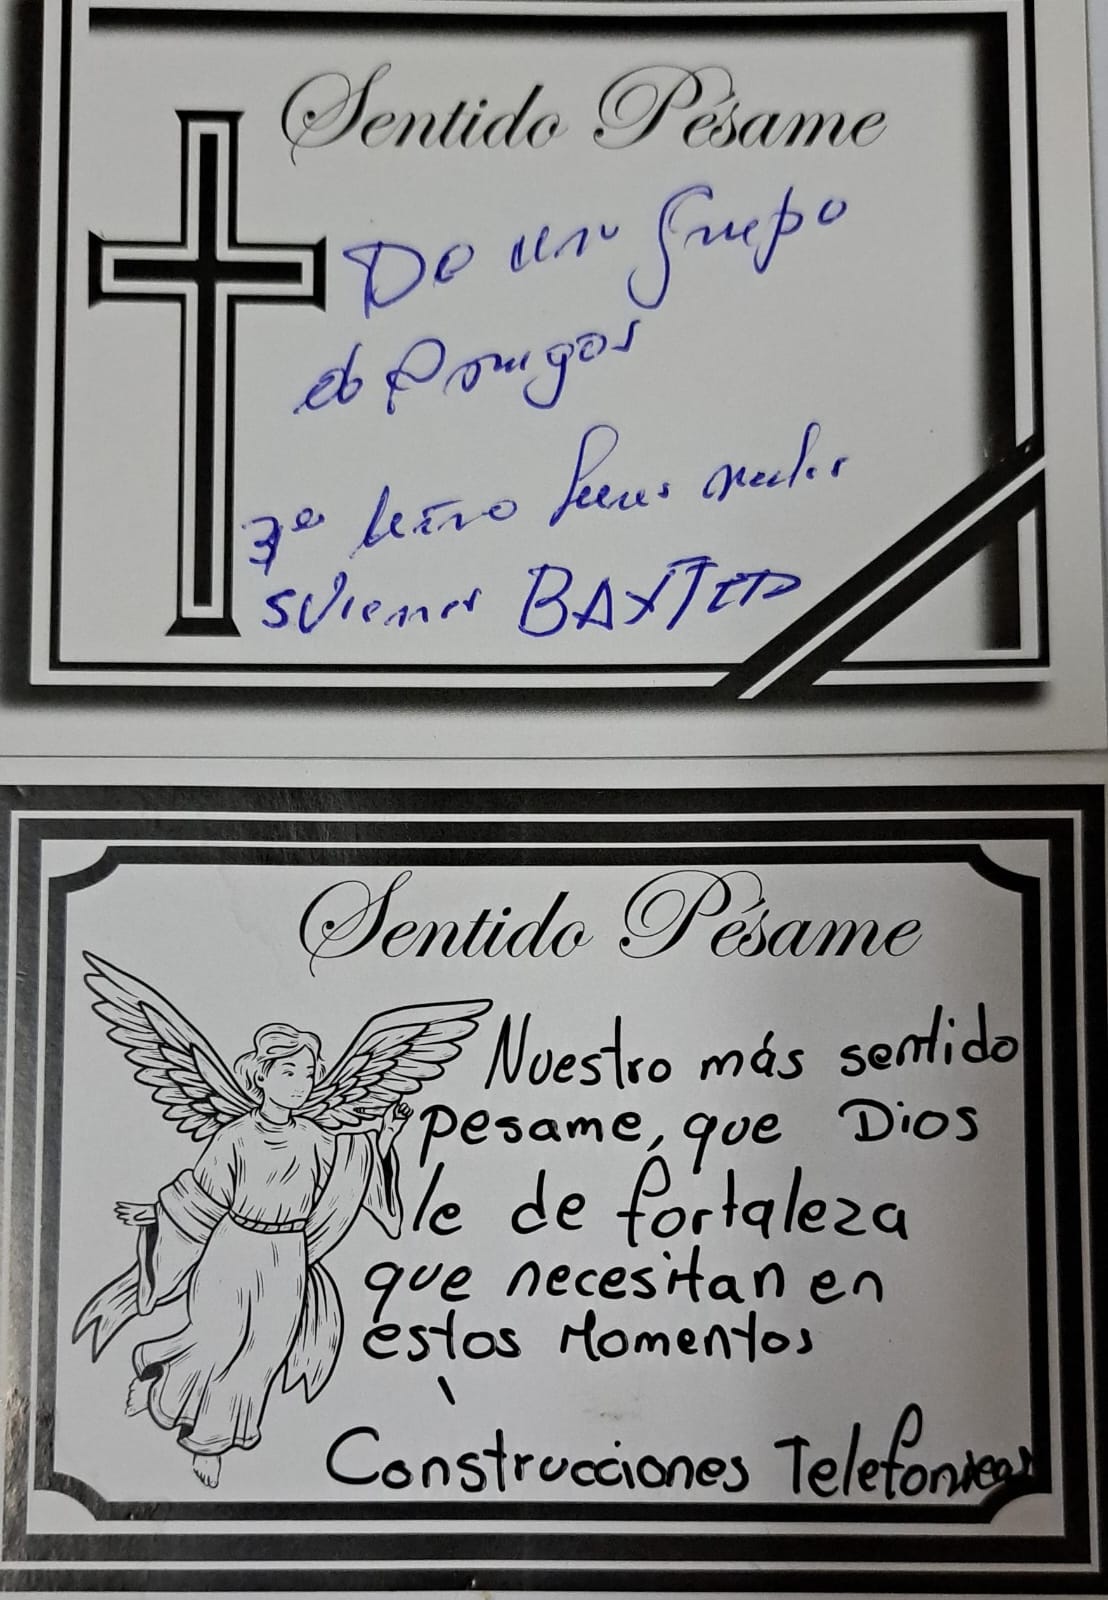 Sentido Pésame
De un Grupo
de Amigos
3er
BAXTER
Sentido Pésame
Nuestro más sentido
pesame, que Dios
le de fortaleza
que necesitan en
estos Momentos
Construcciones Telefonicas